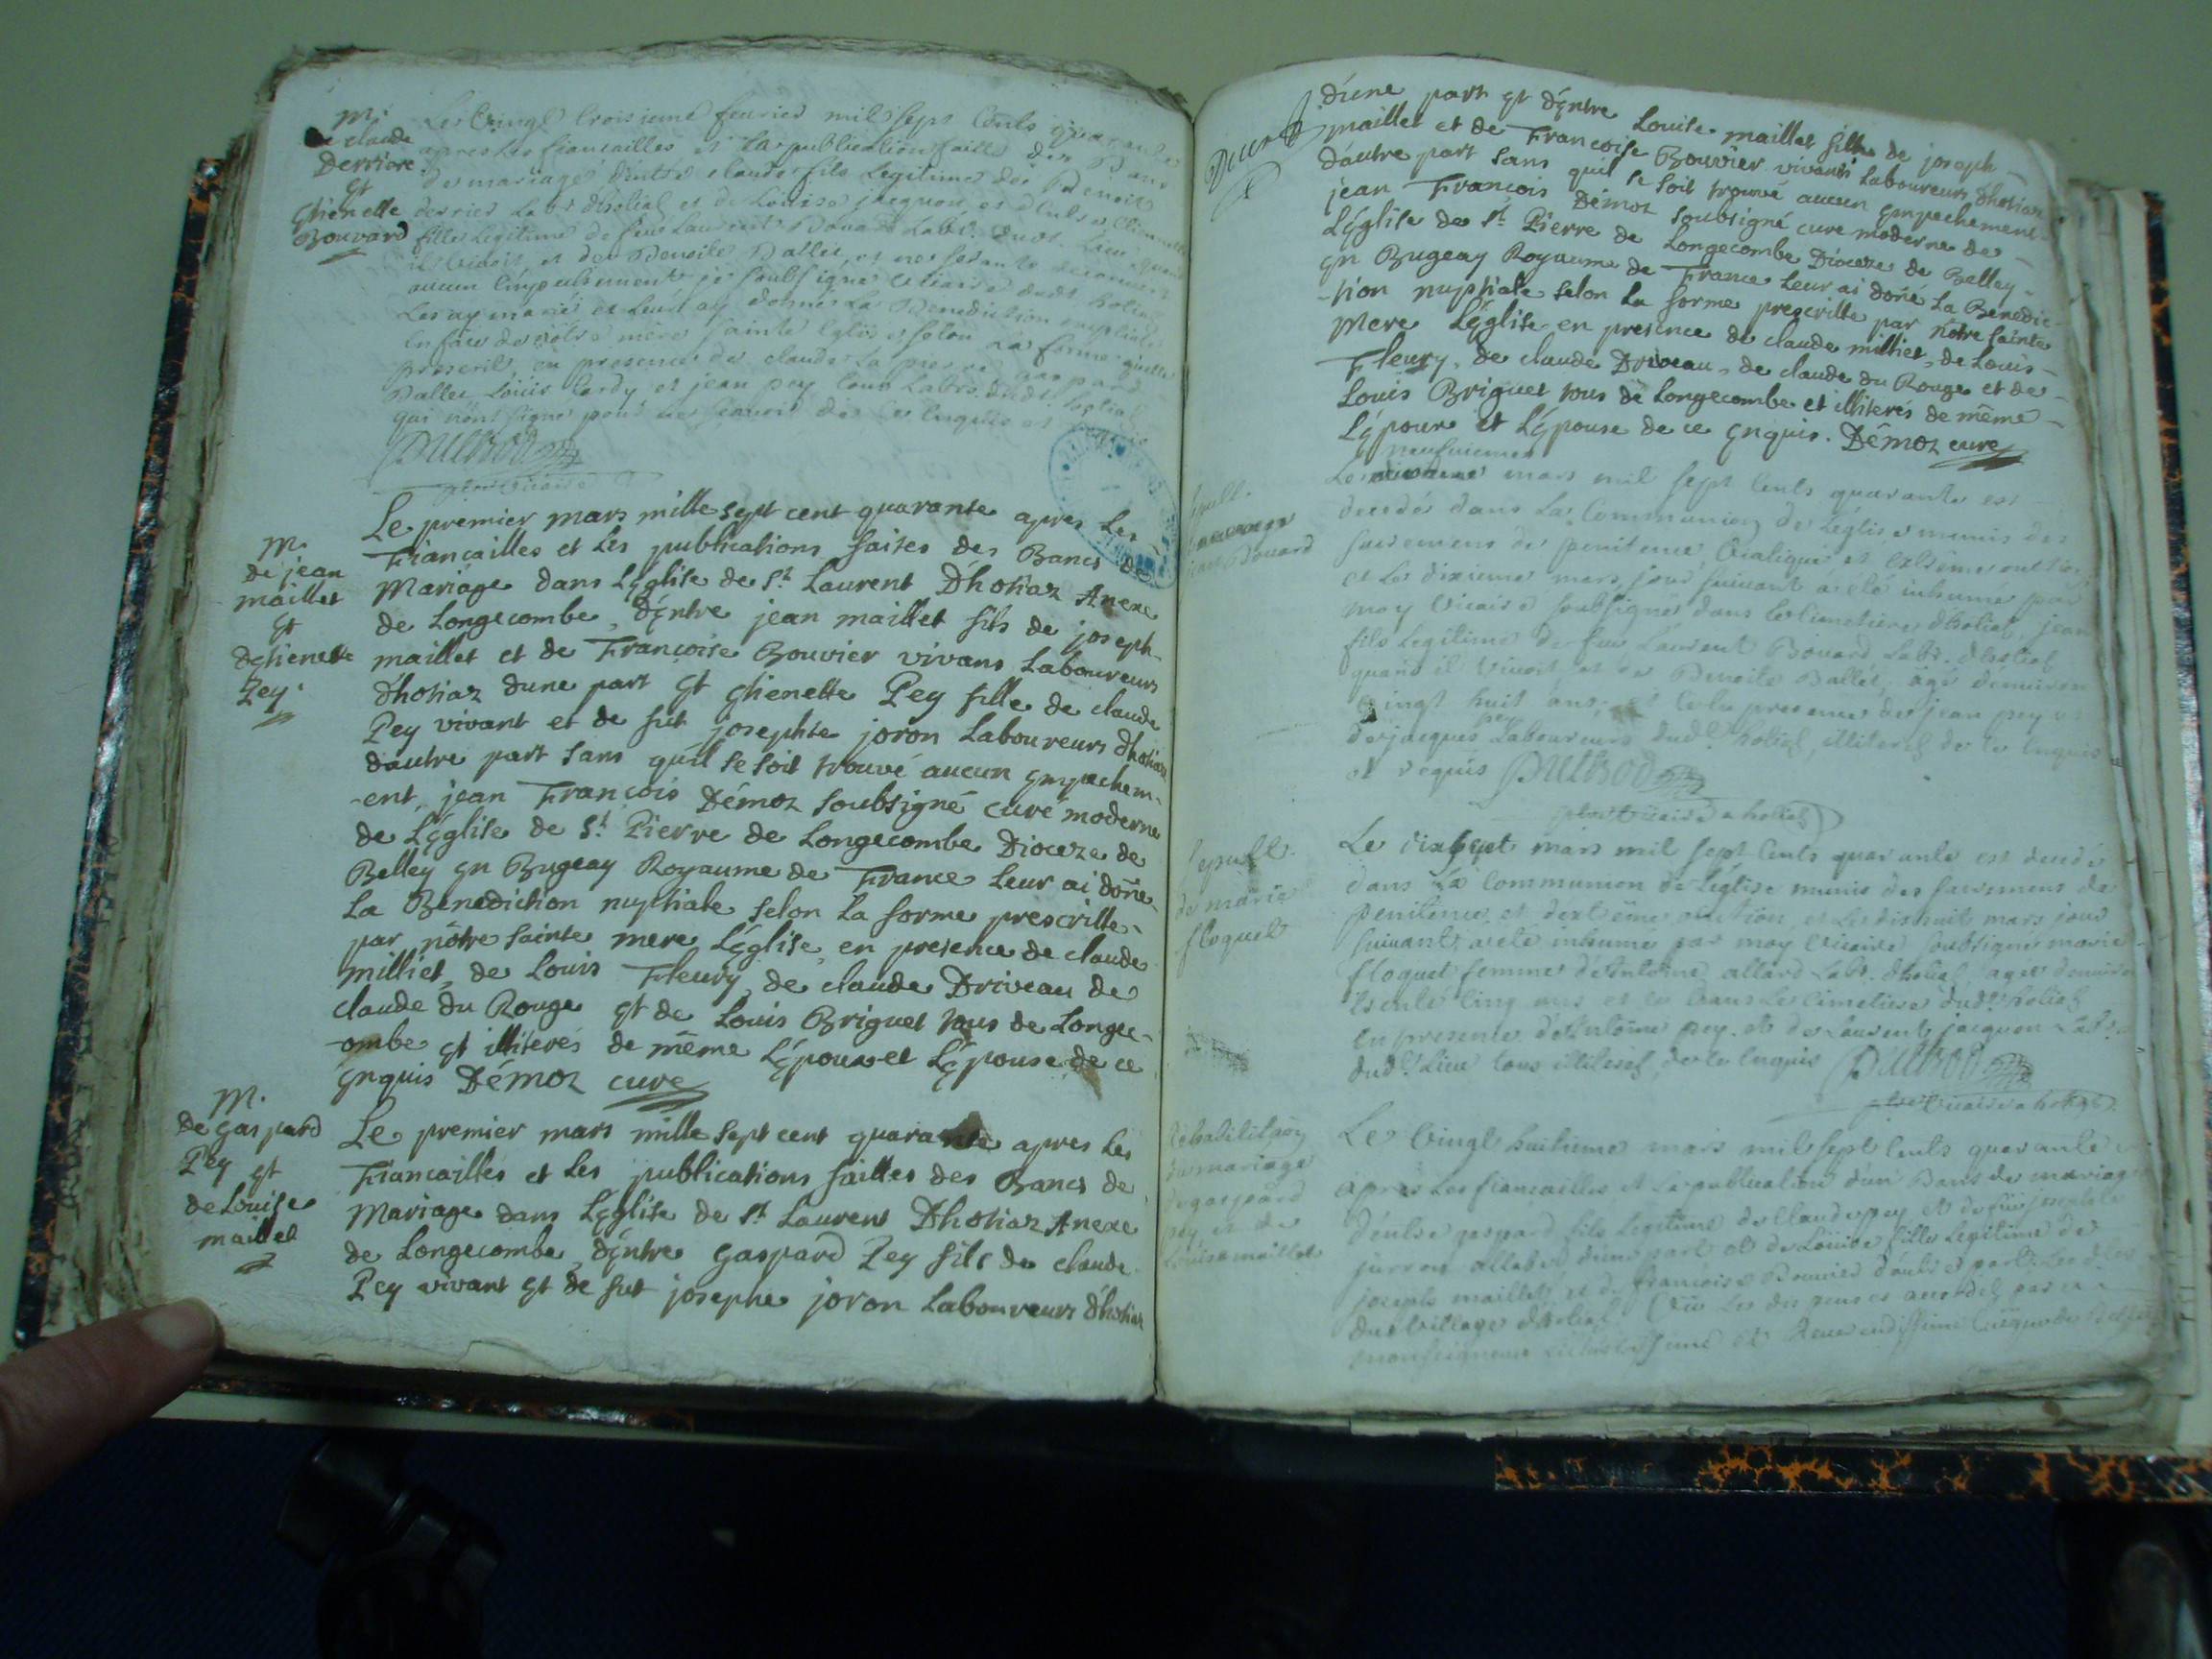 m.
de claude
Derriere
Et
Ethienette
Bouvard
Le vingt troisieme fevrier mil sept cents quarante
apres les fiancailles et la publication faitte des Bans
de mariage d'entre claude fils Legitime de Benoit
derrier Labr d'hotiaz et de Louise jacquou et
fille Legitime de feu Laurent Bouard Labr. dudt. Lieu quand
il vivoit, et de Benoite Ballet, et ne se
aucun empechement je soubsigné vicaire dudt hotiaz
Les ay marié et leur ay donné La Benediction nuptiale
en face de nôtre mère sainte Eglise selon La forme qu'elle
prescrit, en presence de claude La
Ballet Louis Cardy et jean pey tous Labrs. dudt hotiaz
qui n'ont signé pour ne sçavoir de ce enquis et
m.
de jean
maillet
Et
dethienette
Pey.
Le premier mars mille sept cent quarante apres Les
Fiancailles et Les publications faites des Bancs de
Mariage dans L'Eglise de St Laurent D'hotiaz Anexe
de Longecombe, d'Entre jean maillet fils de joseph
maillet et de Francoise Bouvier vivans Laboureurs
d'hotiaz dune part Et Ethienette Pey fille de claude
Pey vivant et de fut josephte joron Laboureurs d'hotiaz
d'autre part sans qu'il se soit trouvé aucun Empechem-
-ent, jean Francois Démoz soubsigné curé moderne
de L'Eglise de St Pierre de Longecombe Dioceze de
Belley En Bugeay Royaume de France Leur ai doñe
La Benediction nuptiale selon la forme prescritte
par nôtre sainte mere L'Eglise, en presence de claude
milliet, de Louis Fleury, de claude Driveau de
claude du Rouge Et de Louis Briguet tous de Longec-
-ombe Et illiterés de même L'Epoux et L'Epouse de ce
Enquis Démoz cure
m.
de gaspard
Pey Et
de Louise
maillet
Le premier mars mille sept cent quarante apres Les
Fiancailles et Les publications faittes des Bancs de
Mariage dans L'Eglise de St Laurent D'hotiaz Anexe
de Longecombe, d'Entre Gaspard Pey fils de claude
Pey vivant Et de fut josephe joron Laboureurs d'hotiaz
d'une part Et d'Entre Louise maillet fille de joseph
maillet et de Francoise Bouvier vivants Laboureurs d'hotiaz
d'autre part sans quil se soit trouvé aucun Empechement
jean Francois Démoz soubsigné cure moderne de
L'Eglise de St Pierre de Longecombe Dioceze de Belley
En Bugeay Royaume de France Leur ai doñé La Benedic-
-tion nuptiale selon La forme prescritte par nôtre sainte
Mere L'Eglise en presence de claude milliet, de Louis
Fleury, de claude Driveau, de claude du Rouge et de
Louis Briguet tous de Longecombe et illiterés de même
L'Epoux et L'Epouse de ce Enquis. Démoz cure
Sepult.
jean Bouard
neufviemes
Le mars mil sept cents quarante est
decedé dans La Communion de L'église munis des
sacremens de penitence, viatique et extreme onction
et Le dixieme mars, jour suivant a eté inhumé par
moy vicaire soubsigné dans Le cimetiere d'hotiaz, jean
fils Legitime de feu Laurent Bouard Labr. d'hotiaz
quand il vivoit et de Benoite Ballet, agé d'environ
vingt huit ans, et en presence de jean pey et
de jacques pey Laboureurs dudt. hotiaz, illiterés de ce enquis
et requis
Sepult.
de marie
floquet
Le dixsept mars mil sept cents quarante est decedé
dans La Communion de L'église munie des sacremens de
penitence, et d'extrême onction et Le dishuit mars jour
suivant a eté inhumé par moy vicaire soubsigné marie
floquet femme d'Antoine allard Labr. d'hotiaz agée d'environ
cinq ans et ce dans Le cimetiere dudt. hotiaz
en presence d'Antoine pey et de Laurent jacquou Labr.
dudt. Lieu tous illiterés de ce enquis
Rehabilitation
du mariage
de gaspard
pey et de
Louise maillet
Le vingt huitieme mars mil sept cents quarante
apres Les fiancailles et La publication d'un Bans de mariage
d'entre gaspard fils Legitime de Claude pey et de feüe josephte
d'une part et de Louise fille Legitime de
joseph maillet et de francoise Bouvier d'autre part
du village d'hotiaz Veu Les dispenses accordés par
monseigneur L'illustrissime et Reverendissime Evêque de Belley